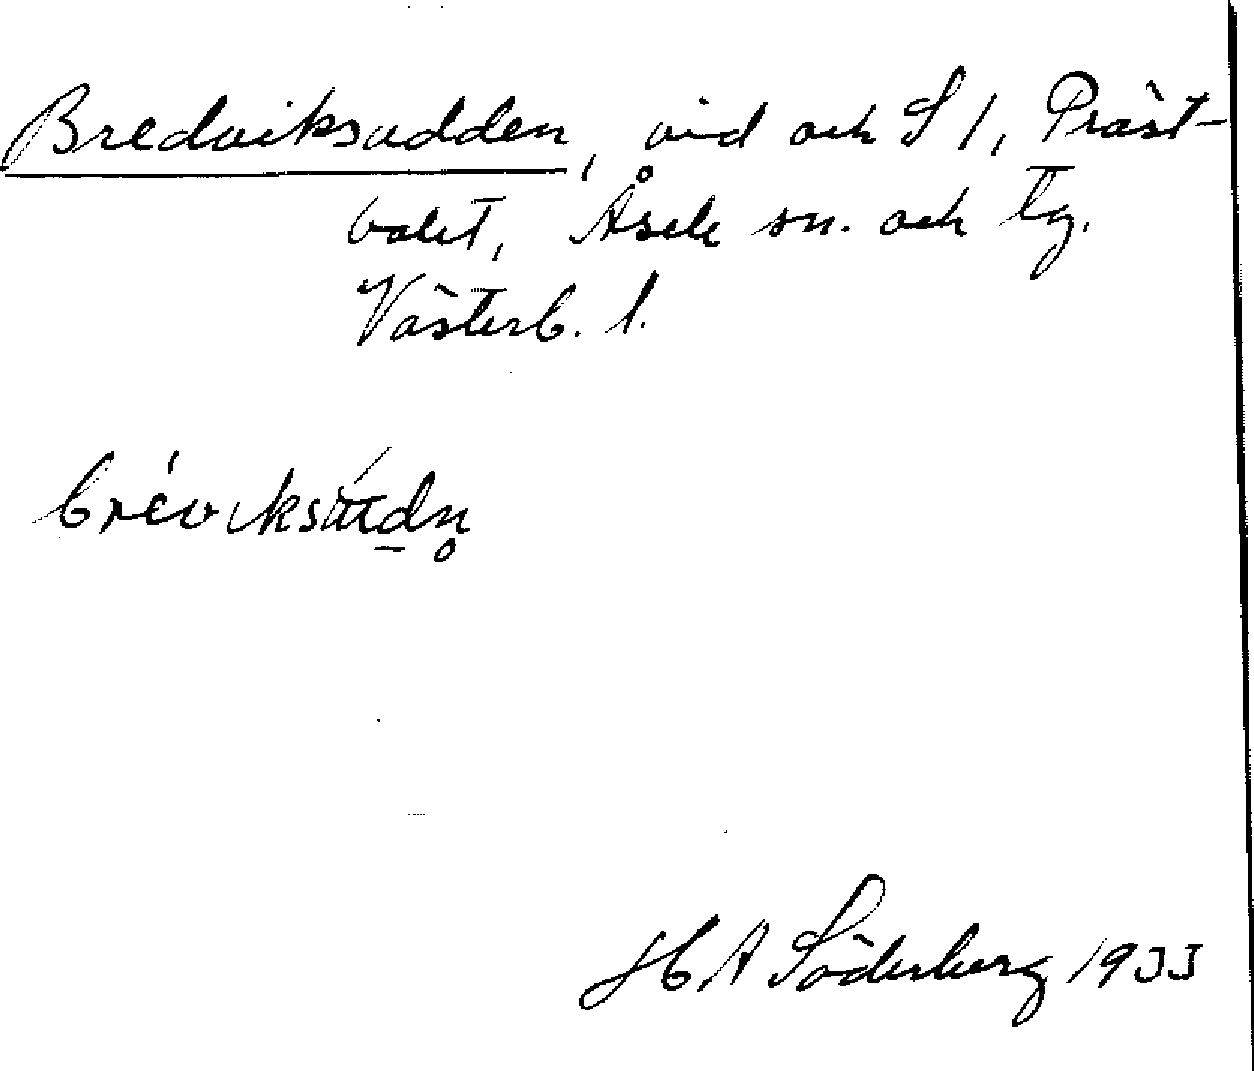 Bredviksudden, vid och S 1, Präst-
bolet, Åsele sn. och tg.
Västerb. l.
H A Söderberg 1933